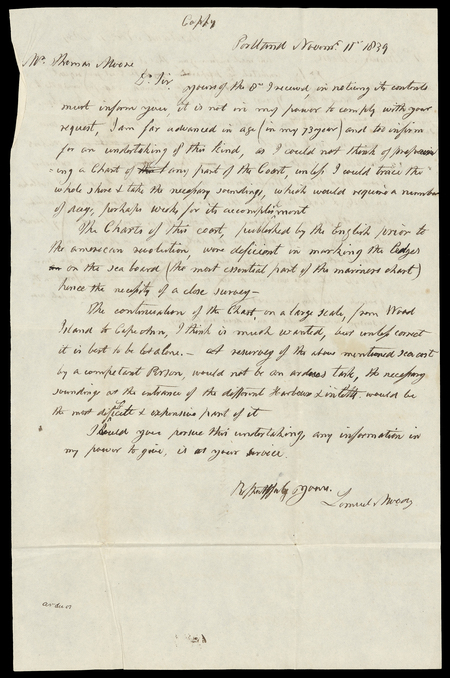 Copy
Portland Novemr 11th 1839
Mr Thomas Moore
Dr Sir yours of the 8th I received in noticing its contents
must inform you, it is not in my power to comply with your
request, I am far advanced in age (in my 73 year) and too infirm
for an undertaking of this kind, as I could not think of
=ing a Chart of any part of the Coast, unless I could trace the
whole shore & take the necessary soundings, which would require a number
of days, perhaps weeks for its accomplisment
The Charts of this coast, published by the English prior to
the american revolution, were deficient in marking the Ledges
on the sea board (the most essential part of the mariners chart)
hence the necessity of a close survey—
The continuation of the Chart, on a large scale, from Wood
Island to Cape Ann, I think is much wanted, but unless correct
it is best to be let alone.— A resurvey of the above mentioned sea cost
by a competant Person, would not be an ardous task, the necessary
soundings at the entrance of the different Harbours & inletts, would be
the most dificelt & expensive part of it
Should you pursue this undertaking, any information in
my power to give, is at your service.
Respectfuly yours.
Lemuel Moody
arduos